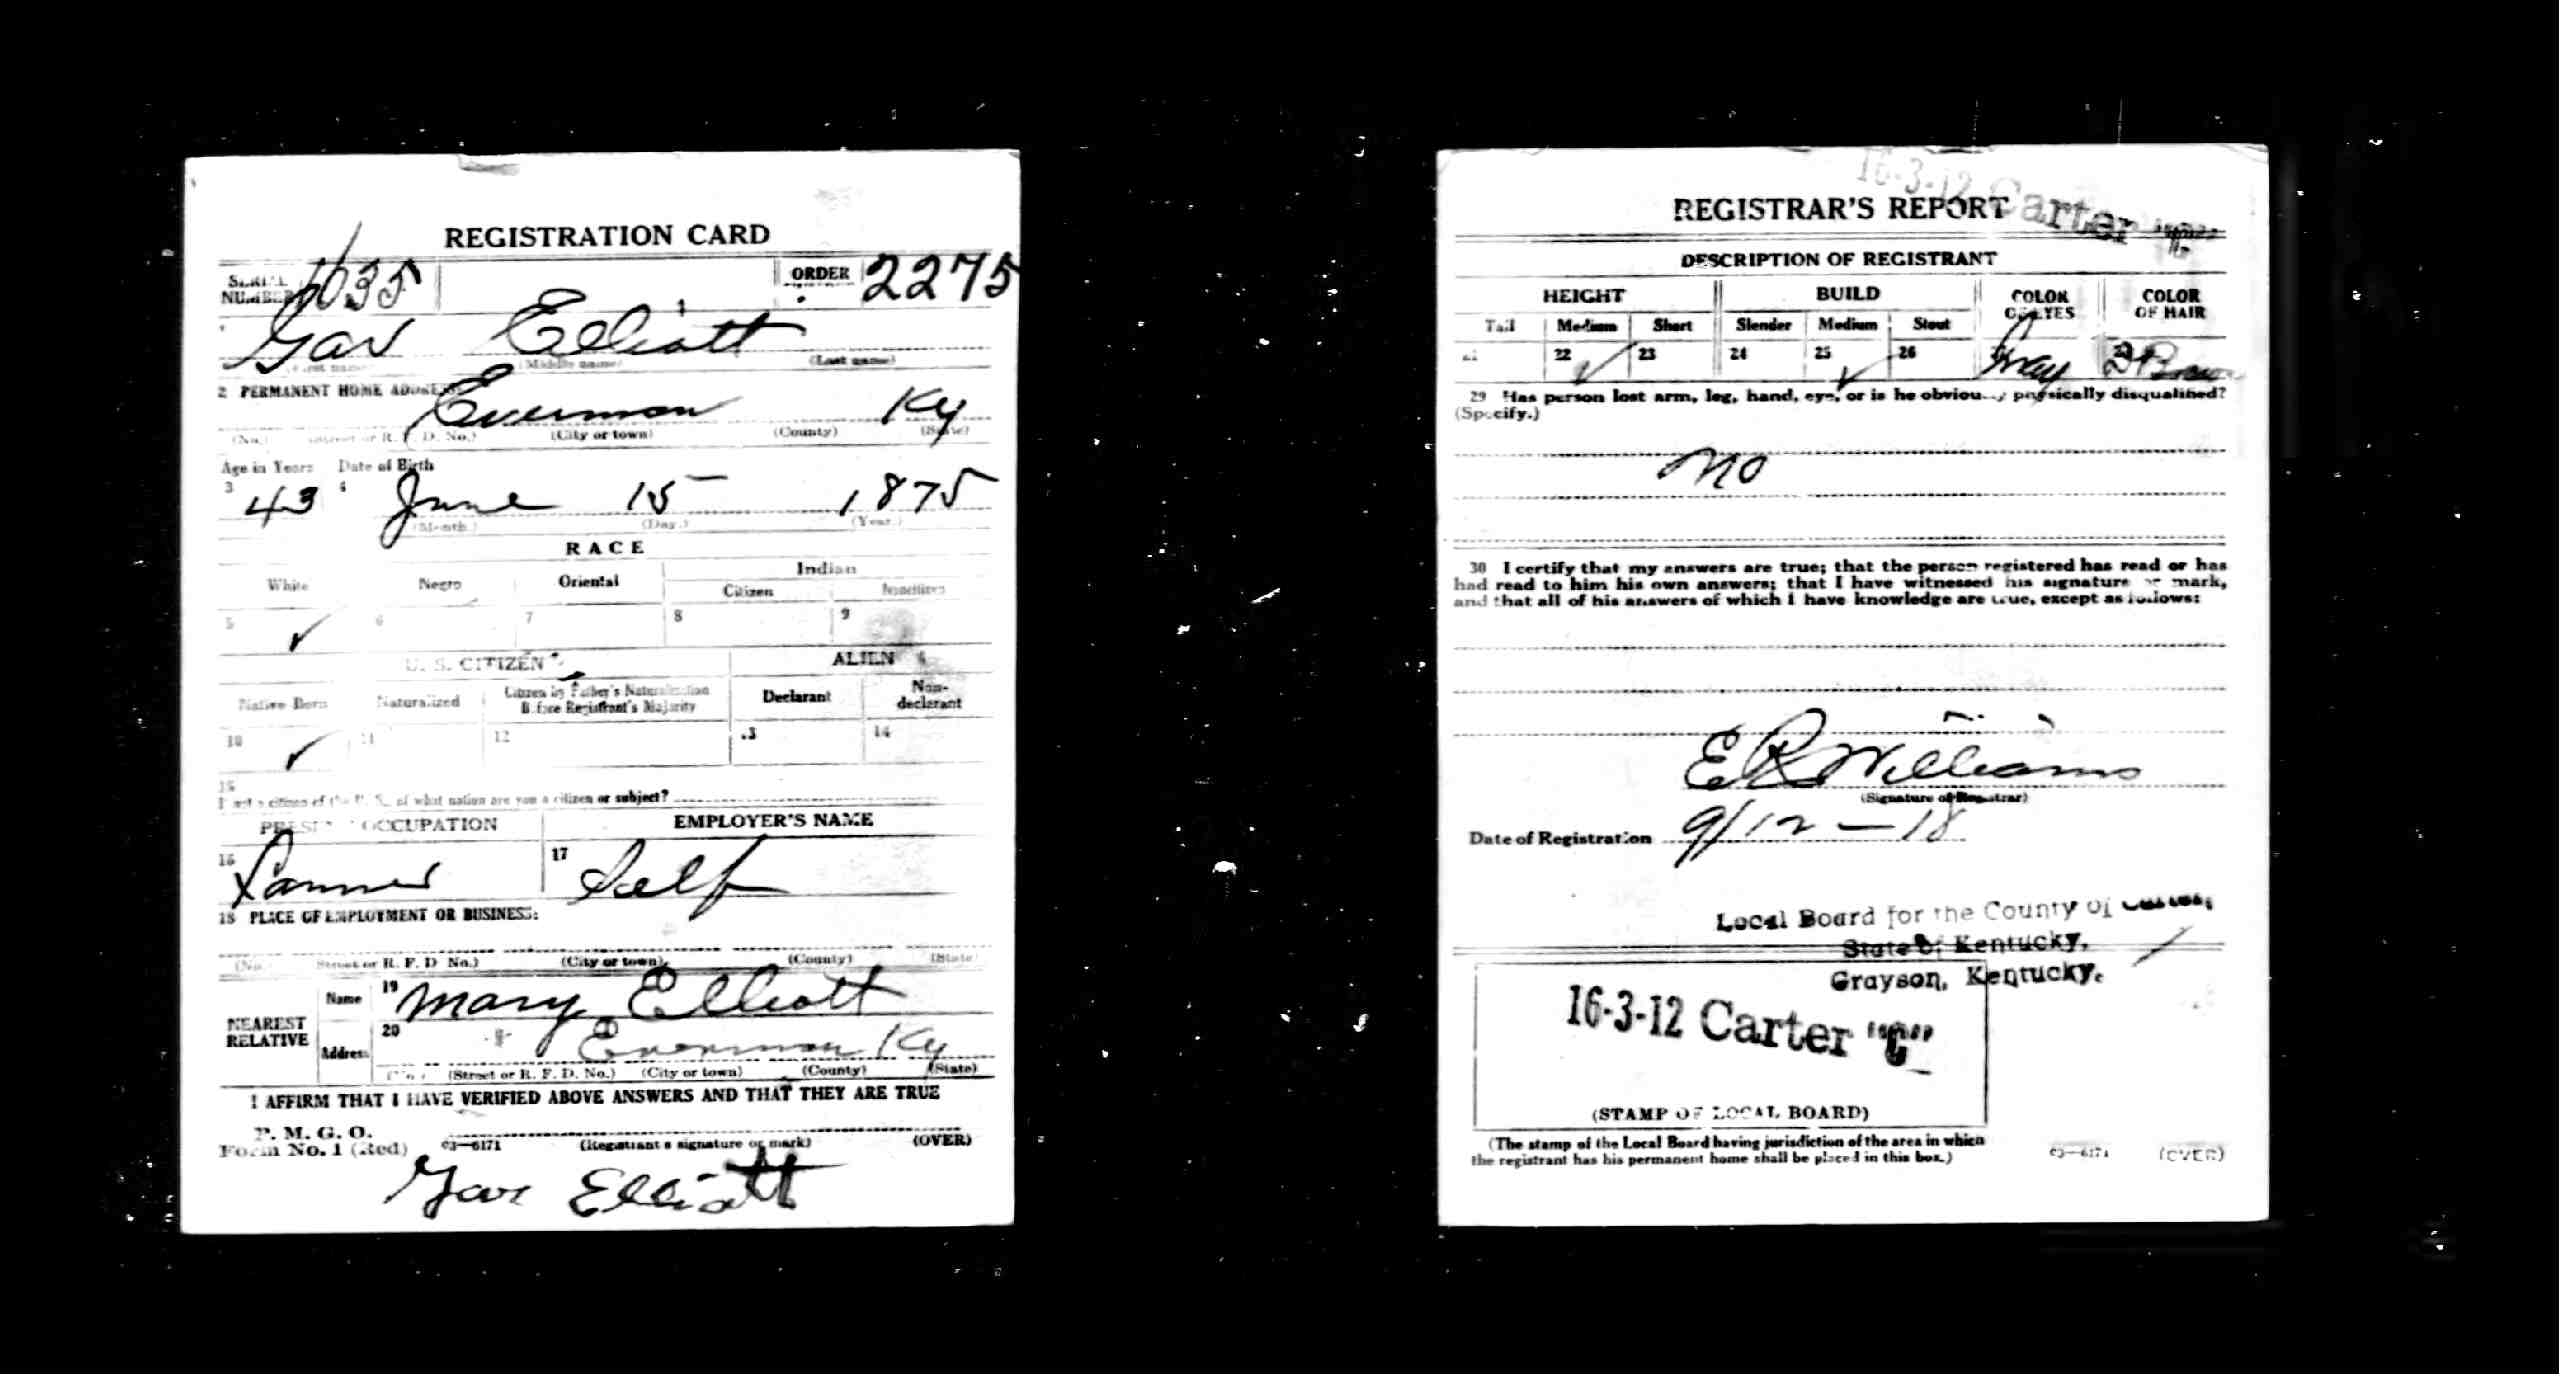 REGISTRATION CARD
SERIAL NUMBER 1035 ORDER 2275
1 Gar Elliott
(First name) (Middle name) (Last name)
2 PERMANENT HOME ADDRESS:
Everman Ky
(No.) (Street or R. F. D. No.) (City or town) (County) (State)
Age in Years Date of Birth
3 43 4 June 15 1875
(Month.) (Day.) (Year.)
RACE
White Negro Oriental Indian
Citizen Noncitizen
5 ✓ 6 7 8 9
U. S. CITIZEN ALIEN
Native Born Naturalized Citizen by Father's Naturalization Before Registrant's Majority Declarant Non-declarant
10 ✓ 11 12 13 14
15
If not a citizen of the U. S., of what nation are you a citizen or subject?
PRESENT OCCUPATION EMPLOYER'S NAME
16 Farmer 17 Self
18 PLACE OF EMPLOYMENT OR BUSINESS:
(No.) (Street or R. F. D. No.) (City or town) (County) (State)
NEAREST RELATIVE
Name 19 Mary Elliott
Address 20 Everman Ky
(No.) (Street or R. F. D. No.) (City or town) (County) (State)
I AFFIRM THAT I HAVE VERIFIED ABOVE ANSWERS AND THAT THEY ARE TRUE
P. M. G. O.
Form No. 1 (Red) 03—6171 (Registrant's signature or mark) (OVER)
Gar Elliott
16-3-12 Carter "C"
REGISTRAR'S REPORT
DESCRIPTION OF REGISTRANT
HEIGHT BUILD COLOR OF EYES COLOR OF HAIR
Tall Medium Short Slender Medium Stout
21 22 ✓ 23 24 25 ✓ 26 Gray Brown
29 Has person lost arm, leg, hand, eye, or is he obviously physically disqualified?
(Specify.)
No
30 I certify that my answers are true; that the person registered has read or has
had read to him his own answers; that I have witnessed his signature or mark,
and that all of his answers of which I have knowledge are true, except as follows:
E R Williams
(Signature of Registrar)
Date of Registration 9/12-18
Local Board for the County of Carter,
State of Kentucky,
Grayson, Kentucky.
16-3-12 Carter "C"
(STAMP OF LOCAL BOARD)
(The stamp of the Local Board having jurisdiction of the area in which
the registrant has his permanent home shall be placed in this box.)
03—6171 (OVER)